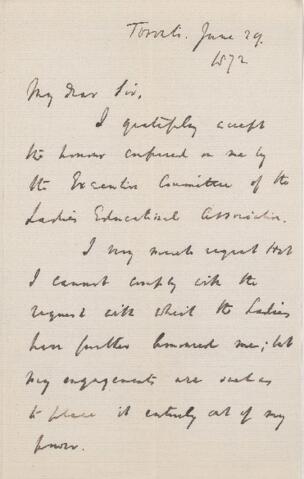 Toronto. June 29.
1872
My dear Sir,
I gratefully accept
the honour conferred on me by
the Executive Committee of the
Ladies Educational Association.
I very much regret that
I cannot comply with the
request with which the Ladies
have further honoured me; but
my engagements are such as
to place it entirely out of my
power.